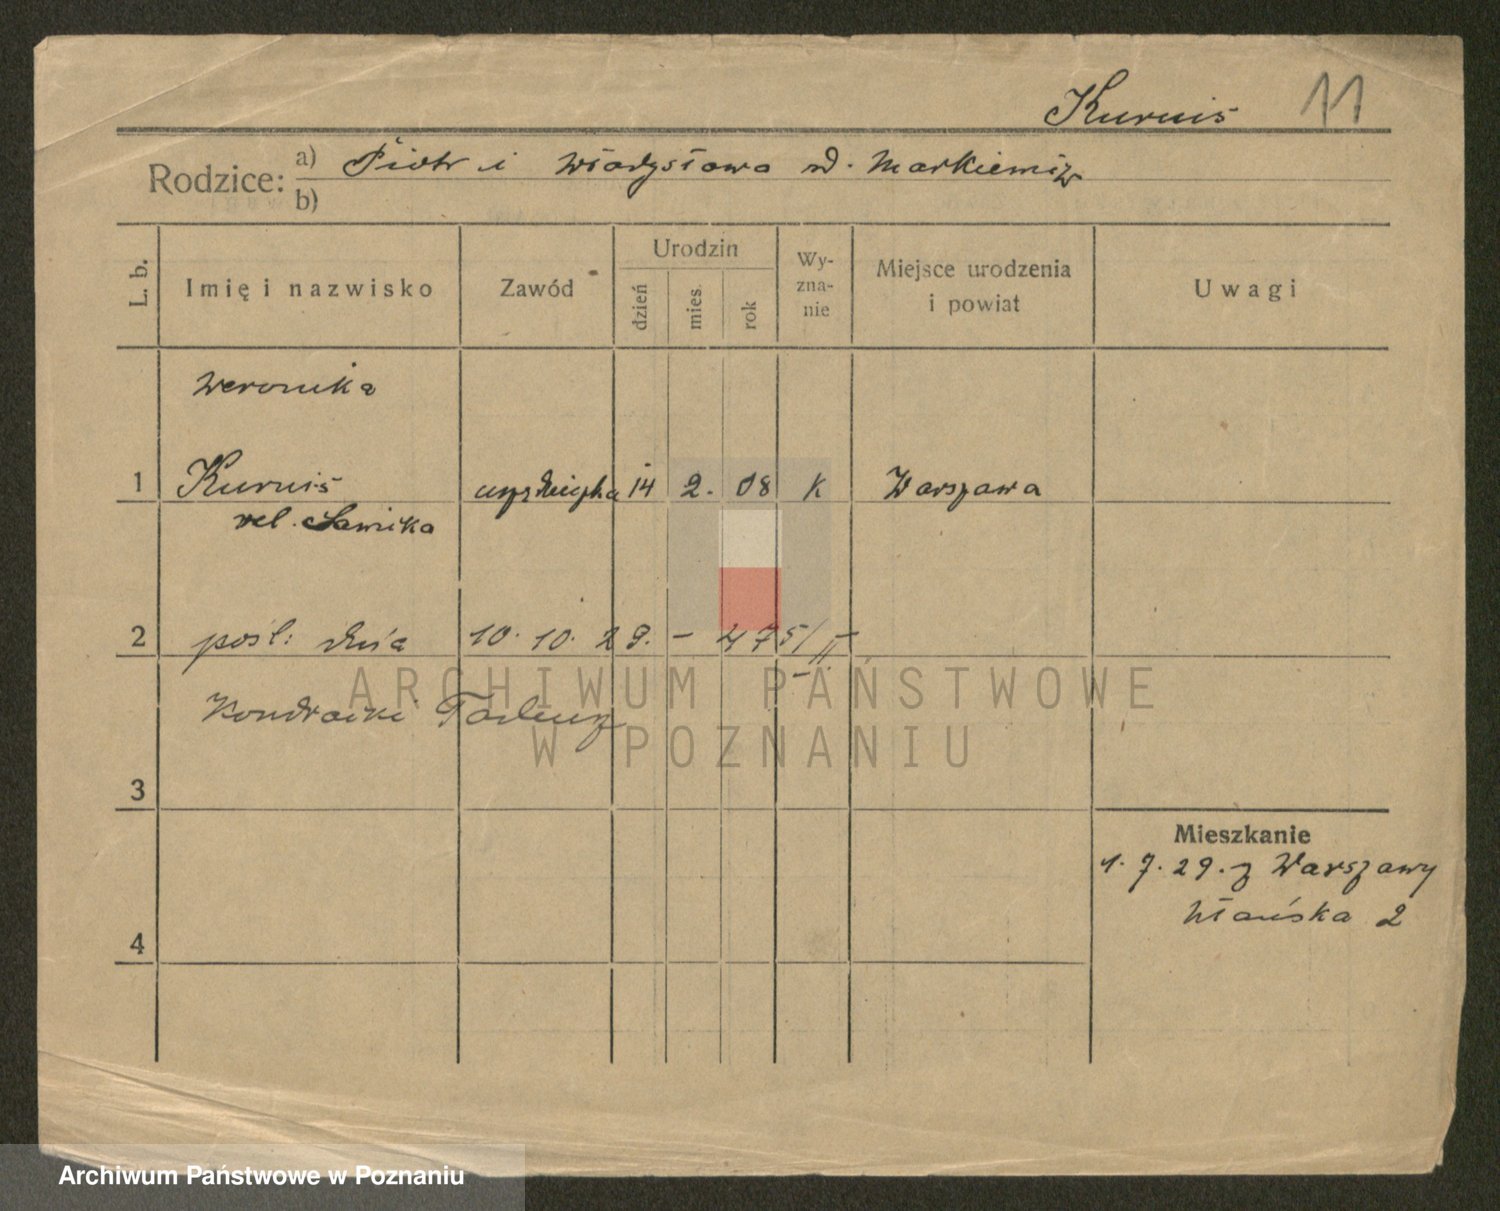 Kurnis 11
Rodzice: a) Piotr i Władysława d. Markiewicz
b)
L. b. Imię i nazwisko Zawód Urodzin Wy- Miejsce urodzenia Uwagi
dzień mies. rok zna- i powiat
nie
Weronika
1 Kurnis urzędniczka 14 2. 08 K Warszawa
vel. Sawicka
2 pośl: dnia 10. 10. 29. - 475/II
Kondracki Tadeusz
ARCHIWUM PAŃSTWOWE
W POZNANIU
3
Mieszkanie
1. 7. 29. z Warszawy
Ułańska 2
4
Archiwum Państwowe w Poznaniu